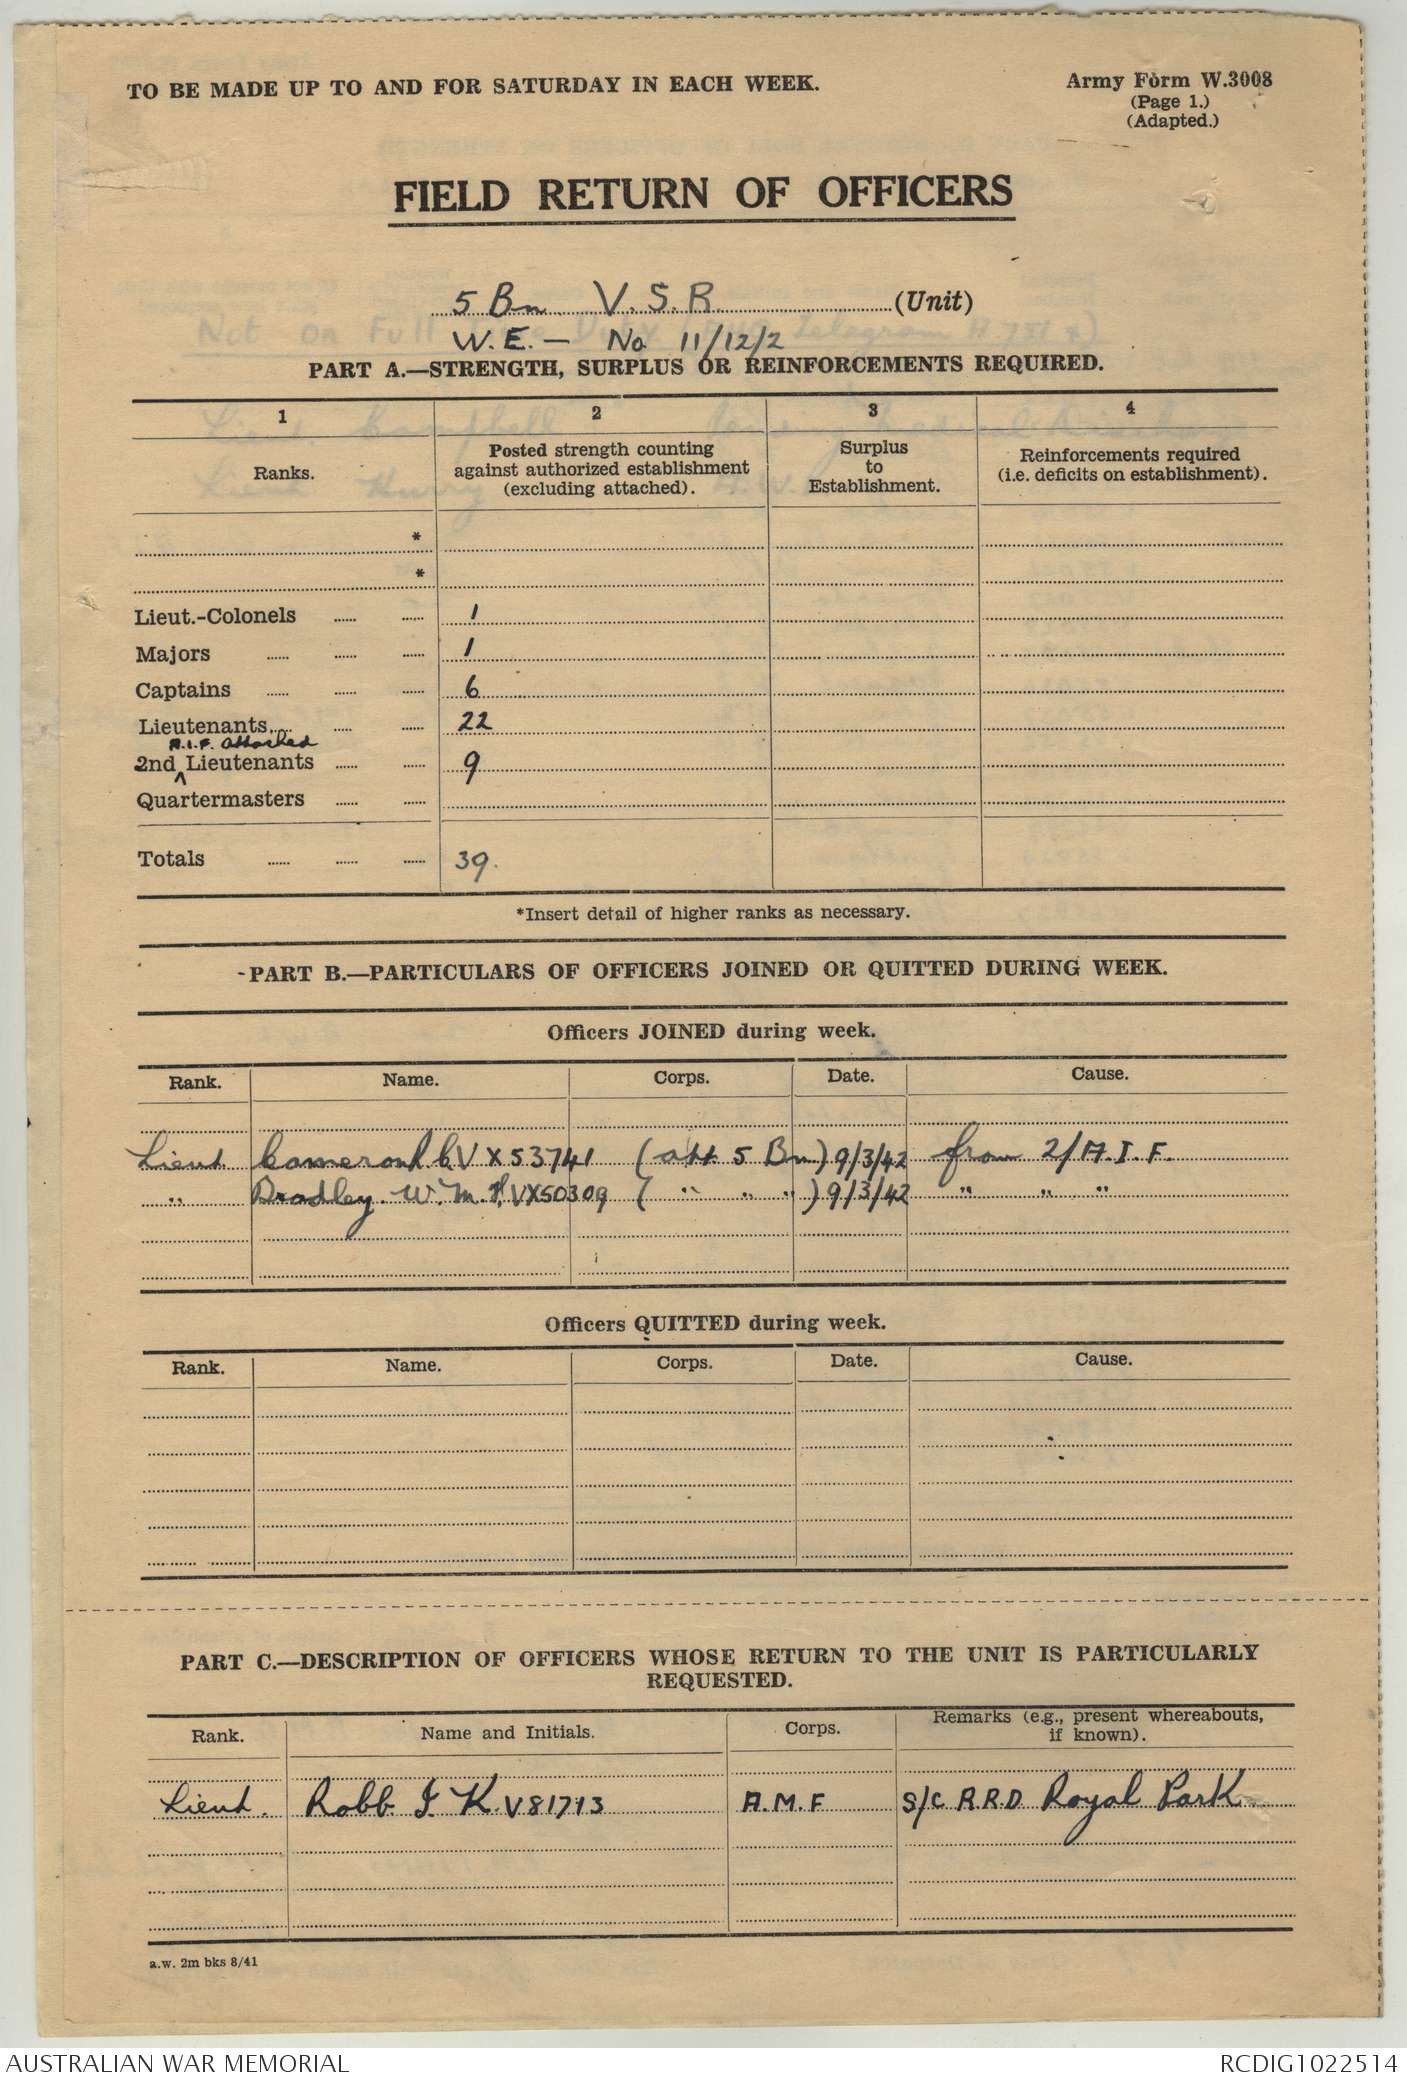 TO BE MADE UP TO AND FOR SATURDAY IN EACH WEEK.
Army Form W.3008
(Page 1.)
(Adapted.)
FIELD RETURN OF OFFICERS
5 Bn V.S.R (Unit)
W.E. — No 11/12/2
PART A.—STRENGTH, SURPLUS OR REINFORCEMENTS REQUIRED.
1 2 3 4
Ranks. Posted strength counting against authorized establishment (excluding attached). Surplus to Establishment. Reinforcements required (i.e. deficits on establishment).
*
*
Lieut.-Colonels 1
Majors 1
Captains 6
Lieutenants 22
A.I.F. attached
2nd ^ Lieutenants 9
Quartermasters
Totals 39.
*Insert detail of higher ranks as necessary.
PART B.—PARTICULARS OF OFFICERS JOINED OR QUITTED DURING WEEK.
Officers JOINED during week.
Rank. Name. Corps. Date. Cause.
Lieut Cameron VX53741 (att 5 Bn) 9/3/42 from 2/A.I.F.
" Bradley W.M. VX50309 ( " " " ) 9/3/42 " " "
Officers QUITTED during week.
Rank. Name. Corps. Date. Cause.
PART C.—DESCRIPTION OF OFFICERS WHOSE RETURN TO THE UNIT IS PARTICULARLY
REQUESTED.
Rank. Name and Initials. Corps. Remarks (e.g., present whereabouts, if known).
Lieut. Robb I K V81713 A.M.F S/C R.R.D Royal Park
a.w. 2m bks 8/41
AUSTRALIAN WAR MEMORIAL
RCDIG1022514